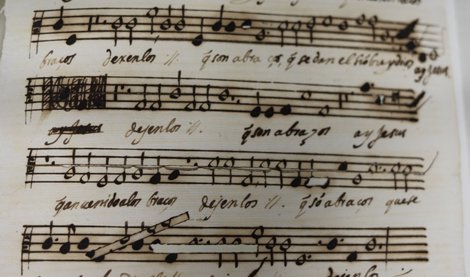 bracos dexenlos ij. q̃ son abraços, q̃ se dan el
ay Jesus
ay Jesus dejenlos ij. q̃ son abraços ay Jesus
q̃ an venido a los bracos dejenlos ij. q̃ sõ abraços que se
dejenlos